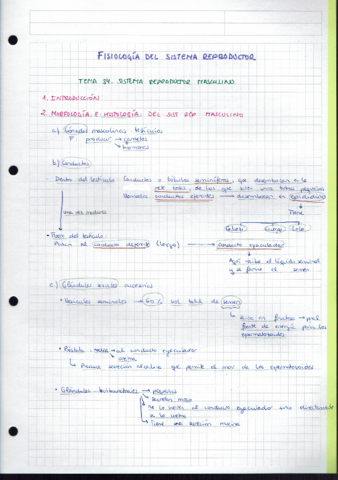 FISIOLOGÍA DEL SISTEMA REPRODUCTOR
TEMA 24. SISTEMA REPRODUCTOR MASCULINO
1. INTRODUCCIÓN
2. MORFOLOGÍA E HISTOLOGÍA DEL SIST. REP MASCULINO
a) Gónadas masculinas: testículos
producir → gametos
→ hormonas
b) Conductos
Dentro del testículo Conductos o túbulos seminíferos, que desembocan en la
rete testis, de las que salen unos tubos pequeños
llamados conductos eferentes → desembocan en epidídimo
Tiene
Cabeza Cuerpo Cola
una vez maduros
• Fuera del testículo:
Pasan al conducto deferente (largo) → conducto eyaculador
Aquí recibe el líquido seminal
y se forma el semen
c) Glándulas sexuales accesorias
• Vesículas seminales → 60% vol total de semen
Rico en fructosa → ppal
fuente de energía para los
espermatozoides
• Próstata al conducto eyaculador
uretra
Produce secreción alcalina que permite el mov de los espermatozoides
• Glándulas bulbouretrales → pequeñas
→ Secretan moco
→ No lo vierten al conducto eyaculador sino directamente
a la uretra
→ Tiene una secreción mucosa